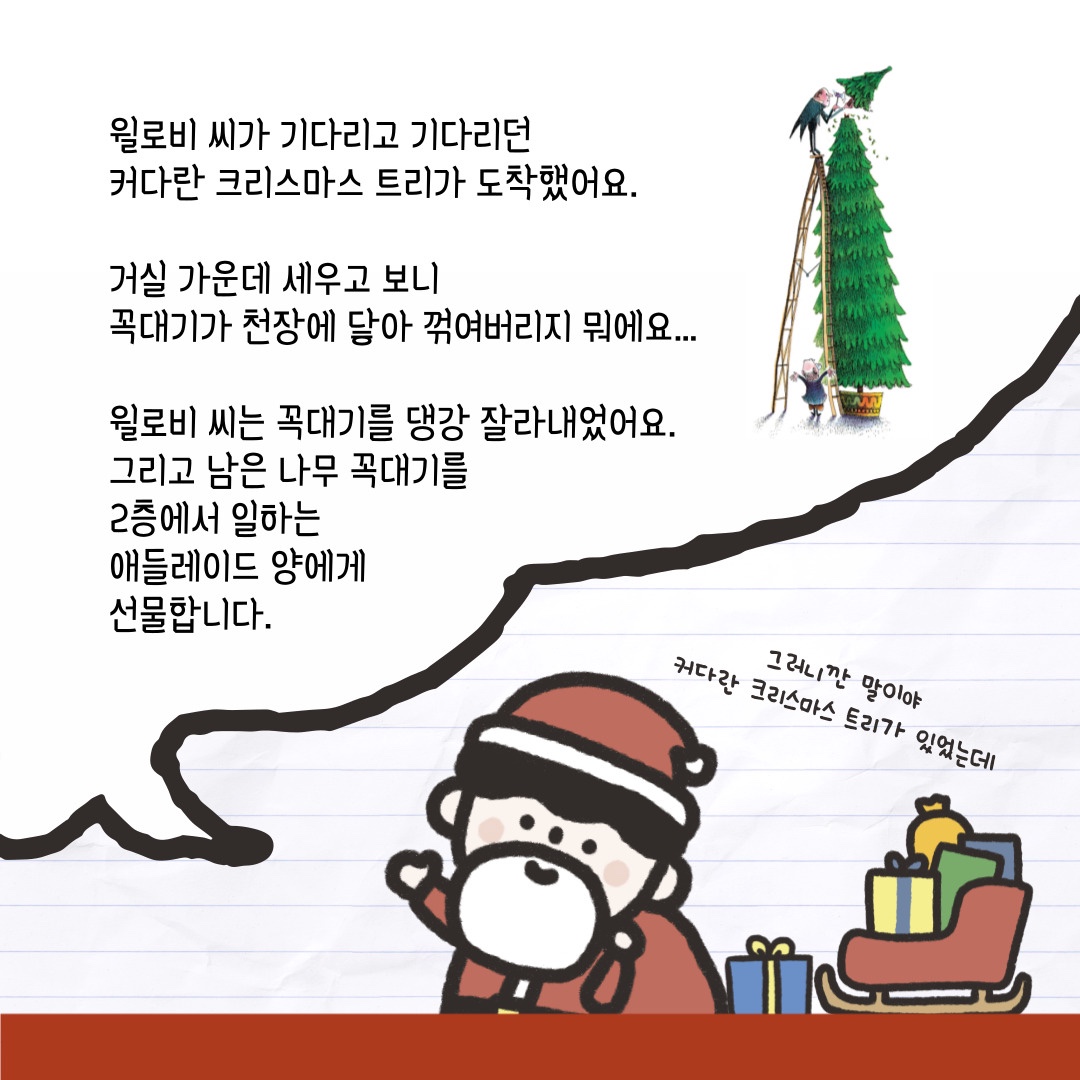 윌로비 씨가 기다리고 기다리던
커다란 크리스마스 트리가 도착했어요.
거실 가운데 세우고 보니
꼭대기가 천장에 닿아 꺾여버리지 뭐에요...
윌로비 씨는 꼭대기를 댕강 잘라내었어요.
그리고 남은 나무 꼭대기를
2층에서 일하는
애들레이드 양에게
선물합니다.
그러니깐 말이야
커다란 크리스마스 트리가 있었는데